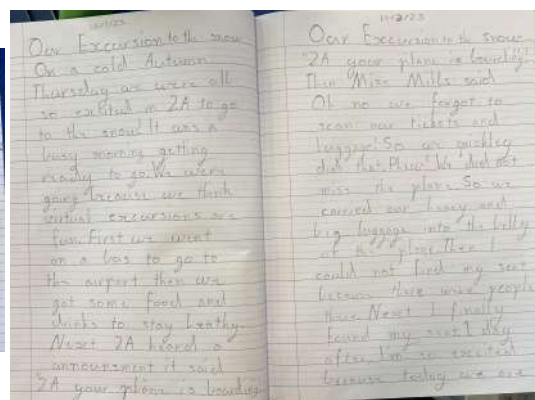 Our Excursion to the snow
On a cold Autumn
Thursday we were all
so excited in 2A to go
to the snow! It was a
busy morning getting
ready to go. We were
going because we think
virtual excursions are
fun. First we went
on a bus to go to
the airport then we
got some food and
drinks to stay healthy.
Next 2A heard a
announsment it said
"2A your plane is boarding
Our Excursion to the snow
"2A your plane is boarding"
Then Miss Mills said
Oh no we forgot to
scan our tickets and
luggage! So we quickley
did that. Phew! We did not
miss the plane. So we
carried our heavy and
big luggage into the belly
of the plane. Then I
could not find my seat
because there were people
there. Next I finally
found my seat. 1 day
after I'm so excited
because today we are